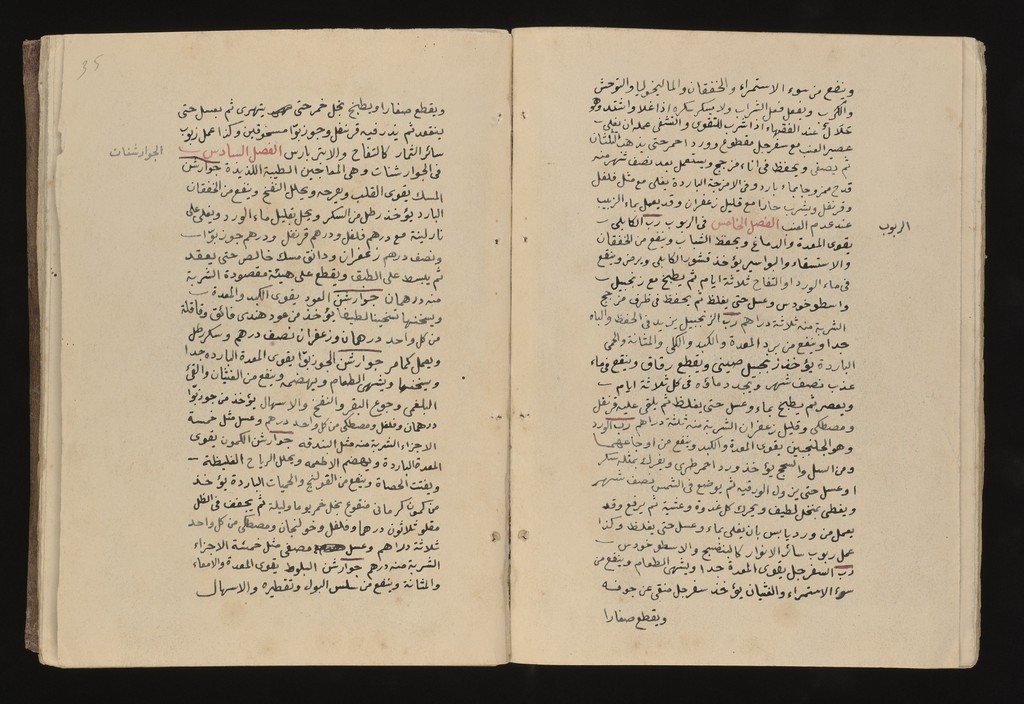 وينفع من سوء الاستمراء والخفقان والماليخوليا والتوحش
والكرب ويفعل فعل الشراب ولا يسكر سكره اذا غلا واشتد وهو
حلال عند الفقهاء اذا شرب للتقوى والتشفى عمله ان يغلى
عصير العنب مع سفرجل مقطوع وورد احمر حتى يذهب الثلثان
ثم يصفى ويحفظ فى اناء مزجج ويستعمل بعد نصف شهر منه
قدح ممزوجا بماء بارد وفى الامزجة الباردة يغلى مع مثل فلفل
وقرنفل ويشرب حارا مع قليل زعفران وقد يعمل بماء الزبيب
عند عدم العنب الفصل الخامس فى الربوب رب الكابلى
الربوب
يقوى المعدة والدماغ ويحفظ الشباب وينفع من الخفقان
والاستسقاء والبواسير يؤخذ قشور الكابلى ويرض وينقع
فى ماء الورد او التفاح ثلاثة ايام ثم يطبخ مع زنجبيل
واسطوخودس وعسل حتى يغلظ ثم يحفظ فى ظرف مزجج
الشربة منه ثلاثة دراهم رب الزنجبيل يزيد فى الحفظ والباه
جدا وينفع من برد المعدة والكبد والكلى والمثانة والحمى
الباردة يؤخذ زنجبيل صينى ويقطع رقاق وينقع فى ماء
عذب نصف شهر ويجدد ماؤه فى كل ثلاثة ايام
ويعصر ثم يطبخ بماء وعسل حتى يغلظ ثم يلقى عليه قرنفل
ومصطكى وقليل زعفران الشربة منه ثلثة دراهم رب الورد
وهو الجلنجبين يقوى المعدة والكبد وينفع من اوجاعهما
ومن السل والسحج يؤخذ ورد احمر طرى ويفرك بمثله سكر
او عسل حتى يزول الورقيه ثم يوضع فى الشمس نصف شهر
ويغطى بمنخل لطيف ويحرك كل غدوة وعشية ثم يرفع وقد
يعمل من ورد يابس بان يغلى بماء وعسل حتى يغلظ وكذا
عمل ربوب سائر الانوار كالبنفسج والاسطوخودس
رب السفرجل يقوى المعدة جدا ويشهى الطعام وينفع من
سوء الاستمراء والغثيان يؤخذ سفرجل منقى عن جوفه
ويقطع صفارا
35
ويقطع صفارا ويطبخ بخل خمر حتى يتهرى ثم بعسل حتى
ينعقد ثم يذر فيه قرنفل وجوزبوا مسحوقين وكذا عمل ربوب
سائر الثمار كالتفاح والانبربارس الفصل السادس
الجوارشنات
فى الجوارشنات وهى المعاجين الطيبة اللذيذة جوارش
المسك يقوى القلب ويفرحه ويحلل النفخ وينفع من الخفقان
البارد يؤخذ رطل من السكر ويحل بقليل ماء الورد ويغلى على
نار لينة مع درهم فلفل ودرهم قرنفل ودرهم جوزبوا
ونصف درهم زعفران ودانق مسك خالص حتى يعقد
ثم يبسط على الطبق ويقطع على هيئة مقصودة الشربة
منه درهمان جوارش العود يقوى الكبد والمعدة
ويسخنها تسخينا لطيفا يؤخذ من عود هندى فائق وقاقلة
من كل واحد درهمان وزعفران نصف درهم وسكر رطل
ويعمل كما مر جوارش الجوزبوا يقوى المعدة البارده جدا
ويسخنها ويشهى الطعام ويهضمه وينفع من الغثيان والقئ
البلغمى ووجوع البقر والنفخ والاسهال يؤخذ من جوزبوا
درهمان وفلفل ومصطكى من كل واحد درهم وعسل مثل خمسة
الاجزاء الشربة منه مثل البندقه جوارش الكمون يقوى
المعدة الباردة ويهضم الاطعمه ويحلل الرياح الغليظة
ويفتت الحصاة وينفع من القولنج والحميات الباردة يؤخذ
من كمون كرمانى منقوع بخل خمر يوما وليلة ثم يجفف فى الظل
مقلو ثلاثون درهما وفلفل وخولنجان ومصطكى من كل واحد
ثلاثة دراهم وعسل مصفى مثل خمسة الاجزاء
الشربة منه درهم جوارش البلوط يقوى المعدة والامعاء
والمثانة وينفع من سلس البول وتقطيره والاسهال